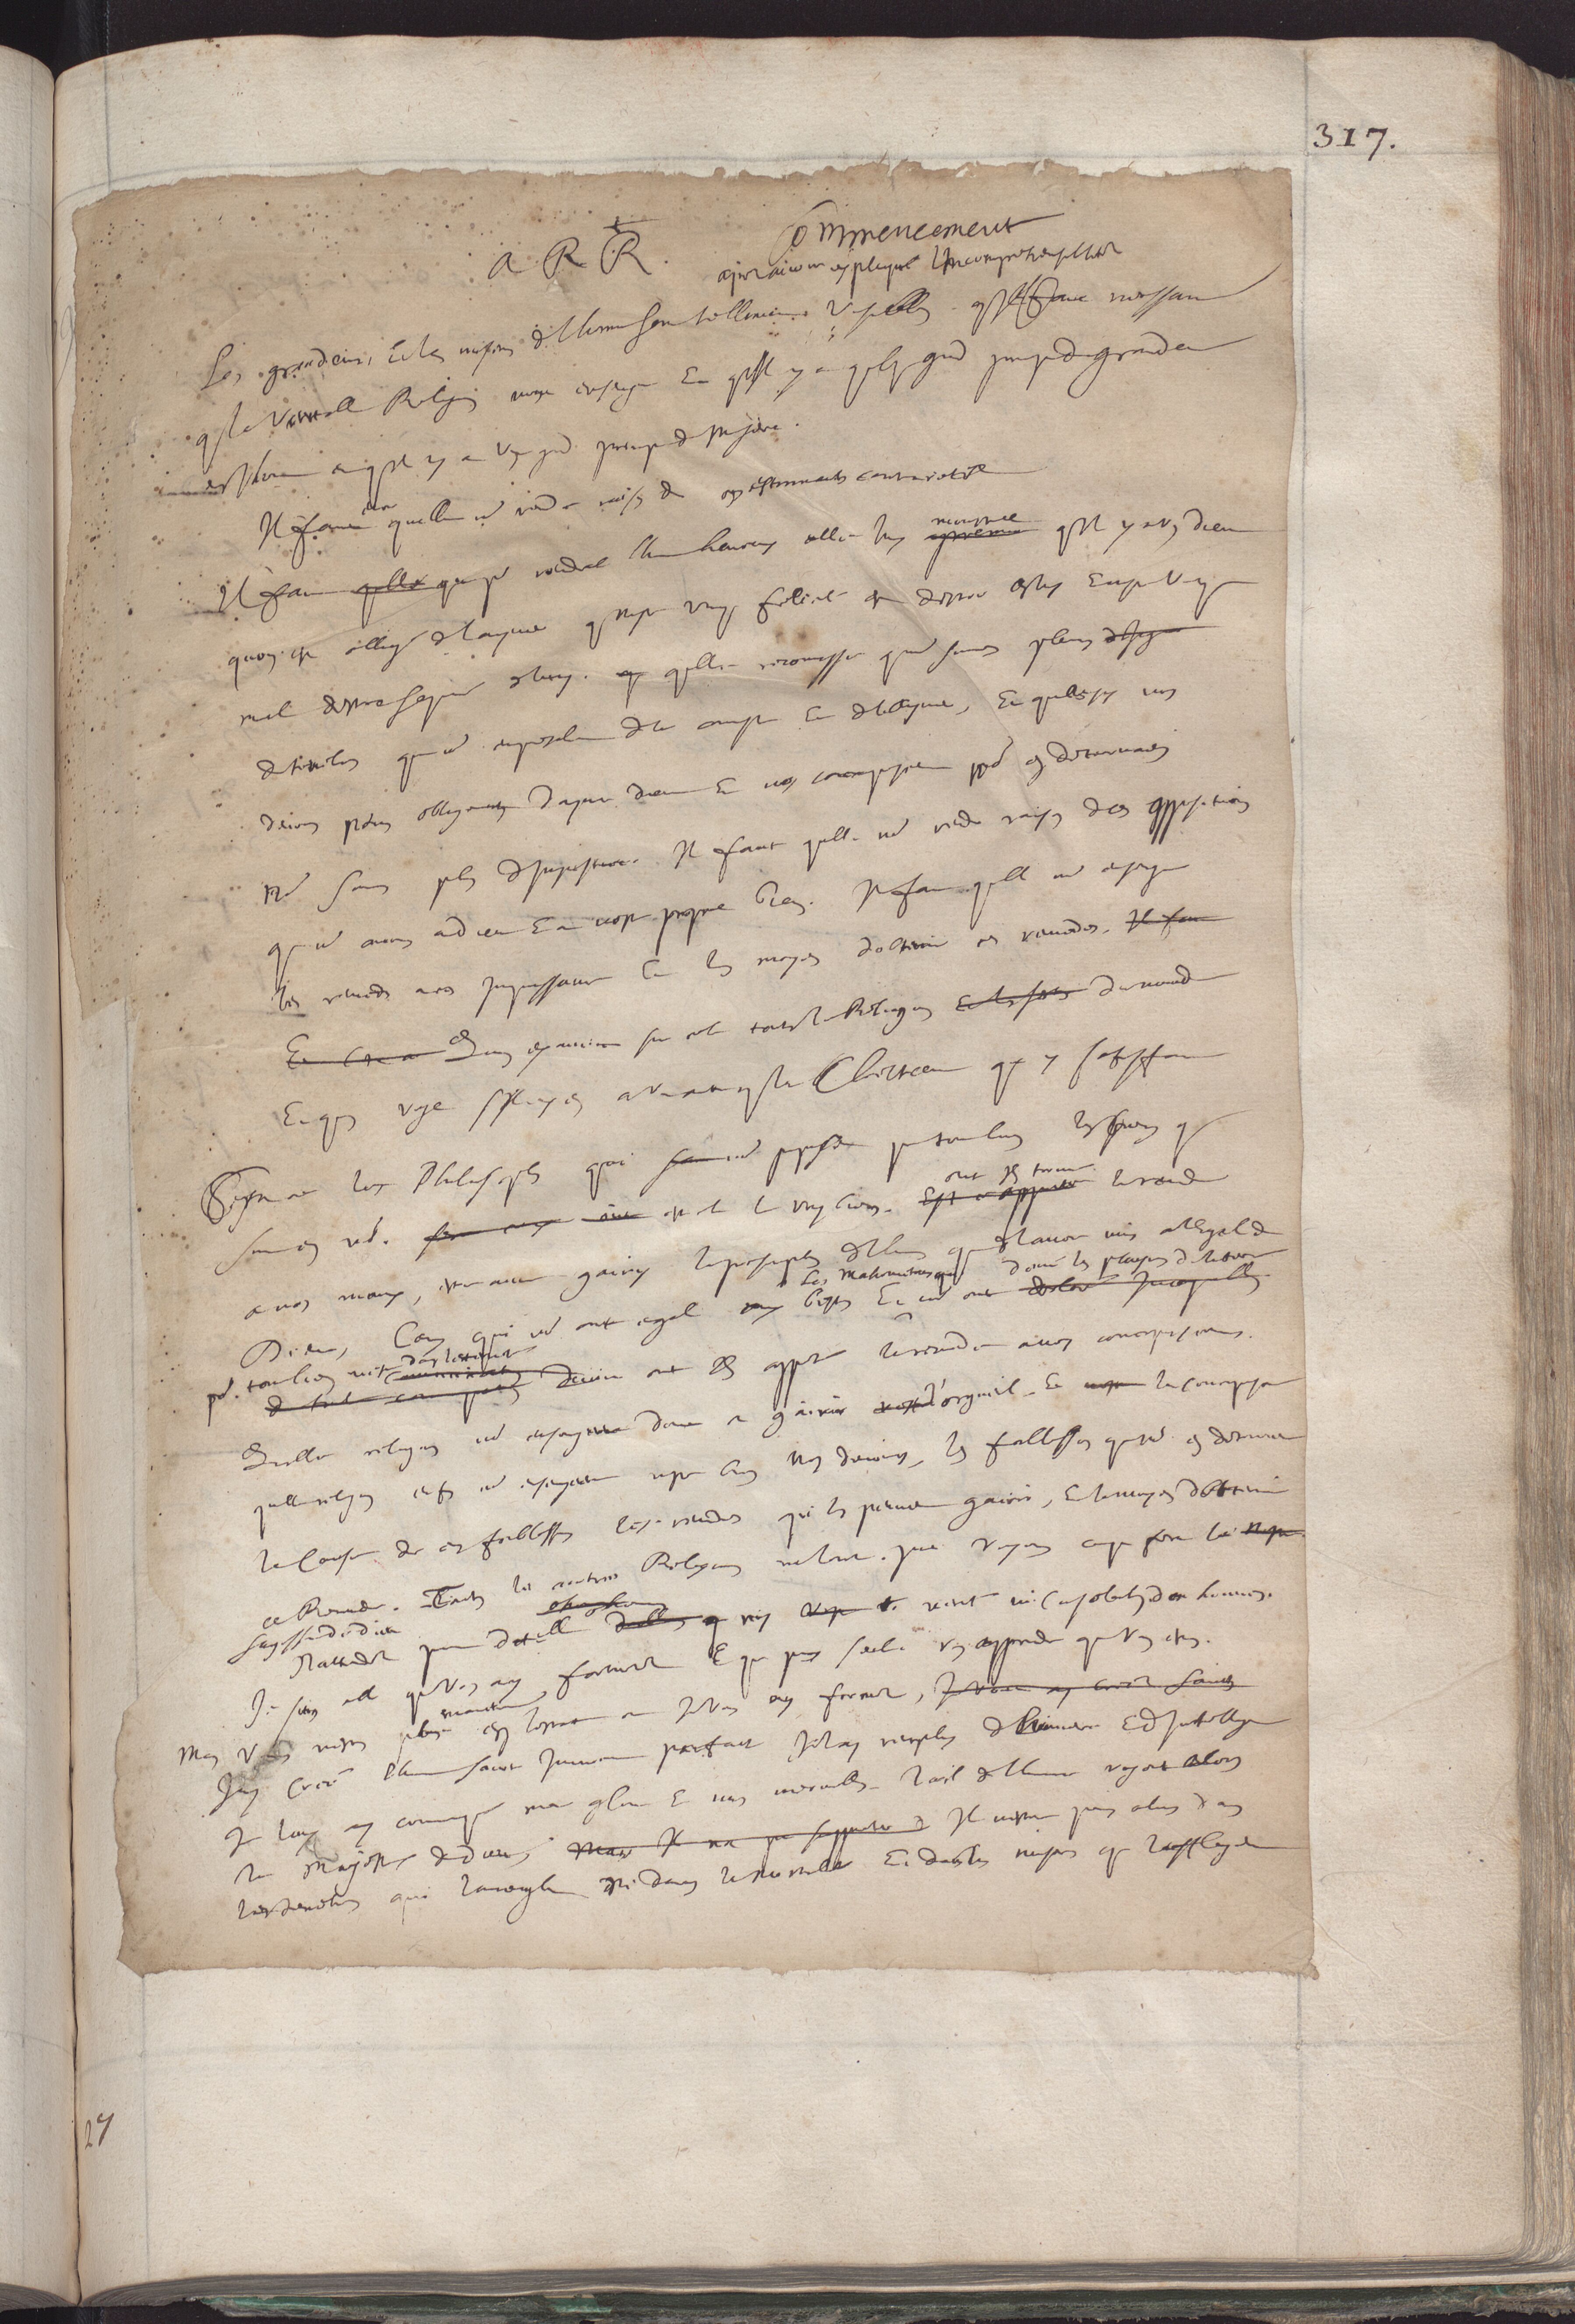 A P. R. Commencement
apres avoir expliqué l'incomprehensibilité
Les grandeurs et les miseres de l'homme sont tellement visibles qu'il faut necessairemt
que la veritable Religion nous enseigne et qu'il y a quelque grand principe de grandeur
en l'homme et qu'il y a un grand principe de misere.
Il faut encor qu'elle nous rende raison de ces estonnantes contrarietés
Il faut que pr rendre l'homme heureux elle luy monstre qu'il y a un dieu
qu'on est obligé de l'aymer que nostre unique felicité est d'estre en luy et nostre unique
mal d'estre separé de luy. qu'elle reconnoisse que ns sommes pleins
de tenebres qui ns empeschent de le connoistre et de l'aymer, et qu'ainsy nos
devoirs ns obligeants d'aymer dieu et nos concupiscences ns en détournants
ns sommes pleins d'injustice. Il faut qu'elle ns rende raison de ces oppositions
que ns avons a dieu et a nostre propre bien. Il faut qu'elle ns enseigne
les remedes a ces impuissances et les moyens d'obtenir ces remedes. Il faut
Qu'on examine sur cela toutes les Religions du monde
Et qu'on voye s'il y en a une autre que la Chrestienne qui y satisfasse
Sera ce les Philosophes qui ns proposent pour tout bien les biens qui
sont en ns. est ce la le vray bien. ont ils trouvé le remede
a nos maux, est ce avoir guery la presomption de l'homme que de l'avoir mis a l'egal de
Dieu, Ceux qui ns ont egalé aux bestes Et les Mahometans qui ns ont donné les plaisirs de la terre
pr. tout bien mesme dans l'eternité ont ils apporté le remede a nos concupiscences.
Quelle religion ns enseignera donc a guerir l'orgueil et la concupiscence
quelle religion enfin ns enseignera nostre bien nos devoirs, les foiblesses qui ns en détournent
la cause de ces foiblesses les remedes qui les peuvent guerir, et le moyen d'obtenir
ces remedes. Toutes les autres Religions ne l'ont pu. voyons ce que fera la
sagesse de dieu
N'attendés point dit elle ny verité ni consolation des hommes.
Je suis celle qui vous ay formés Et qui puis seule vs apprendre qui vous estes.
Mais vous n'estes plus maintenant en l'estat ou je vous ay formés,
J'ay creé l'homme saint innocent parfait je l'ay remply de lumiere et d'intelligence
je luy ay communiqué ma gloire et mes merveilles. L'œil de l'homme voyoit alors
la Majesté de dieu. Il n'estoit pas alors dans
les tenebres qui l'aveuglent ni dans la mortalité Et dans les miseres qui l'affligent
317.
27